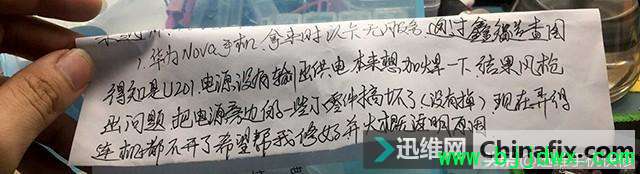 1. 华为Nova手机.拿来时以卡无服务 通过鑫智造查图
得知是U201.电源没有输出供电本来想加焊一下 结果风枪
出问题 把电源旁边的一些小零件搞坏了(没有掉). 现在弄得
连机都不开了希望帮我修好并
迅维网 Chinafix.com
www.bjgdwx.com